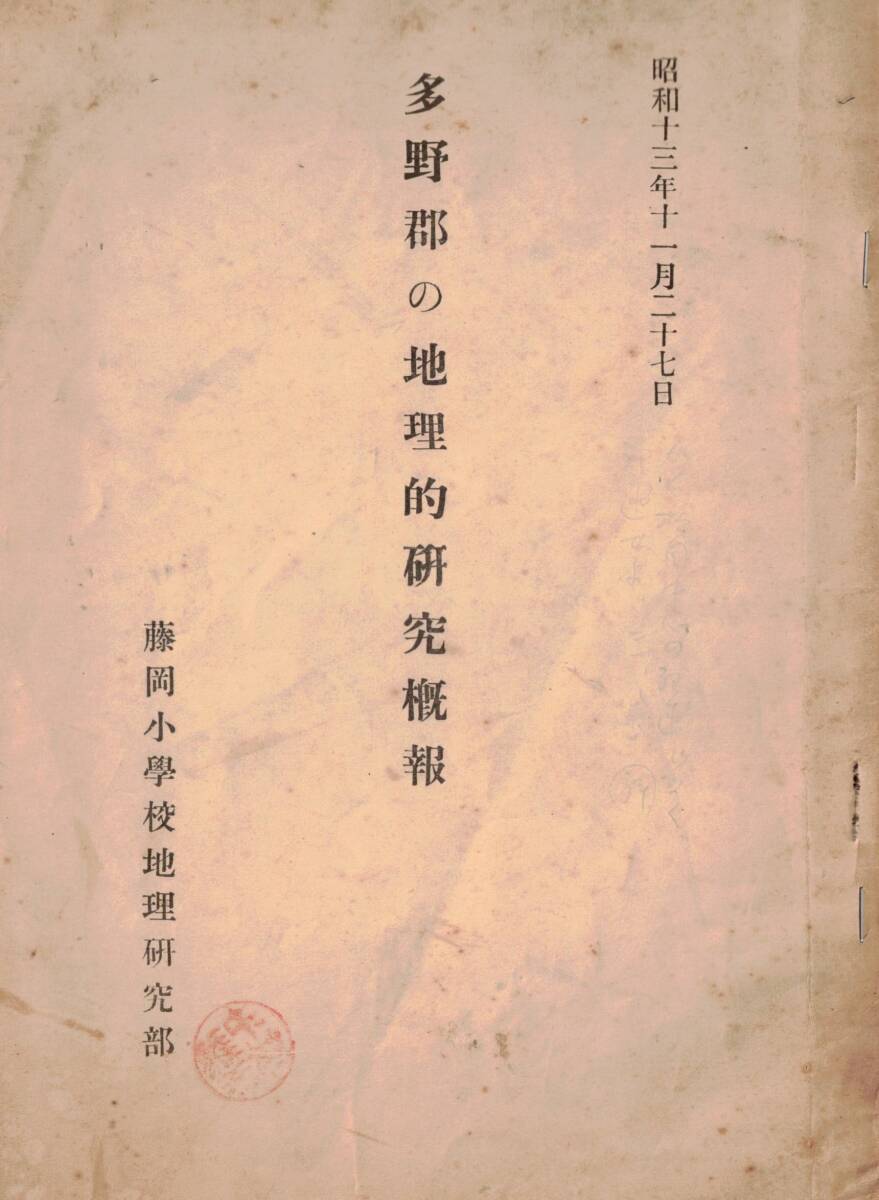 昭和十三年十一月二十七日
多野郡の地理的硏究槪報
藤岡小學校地理硏究部